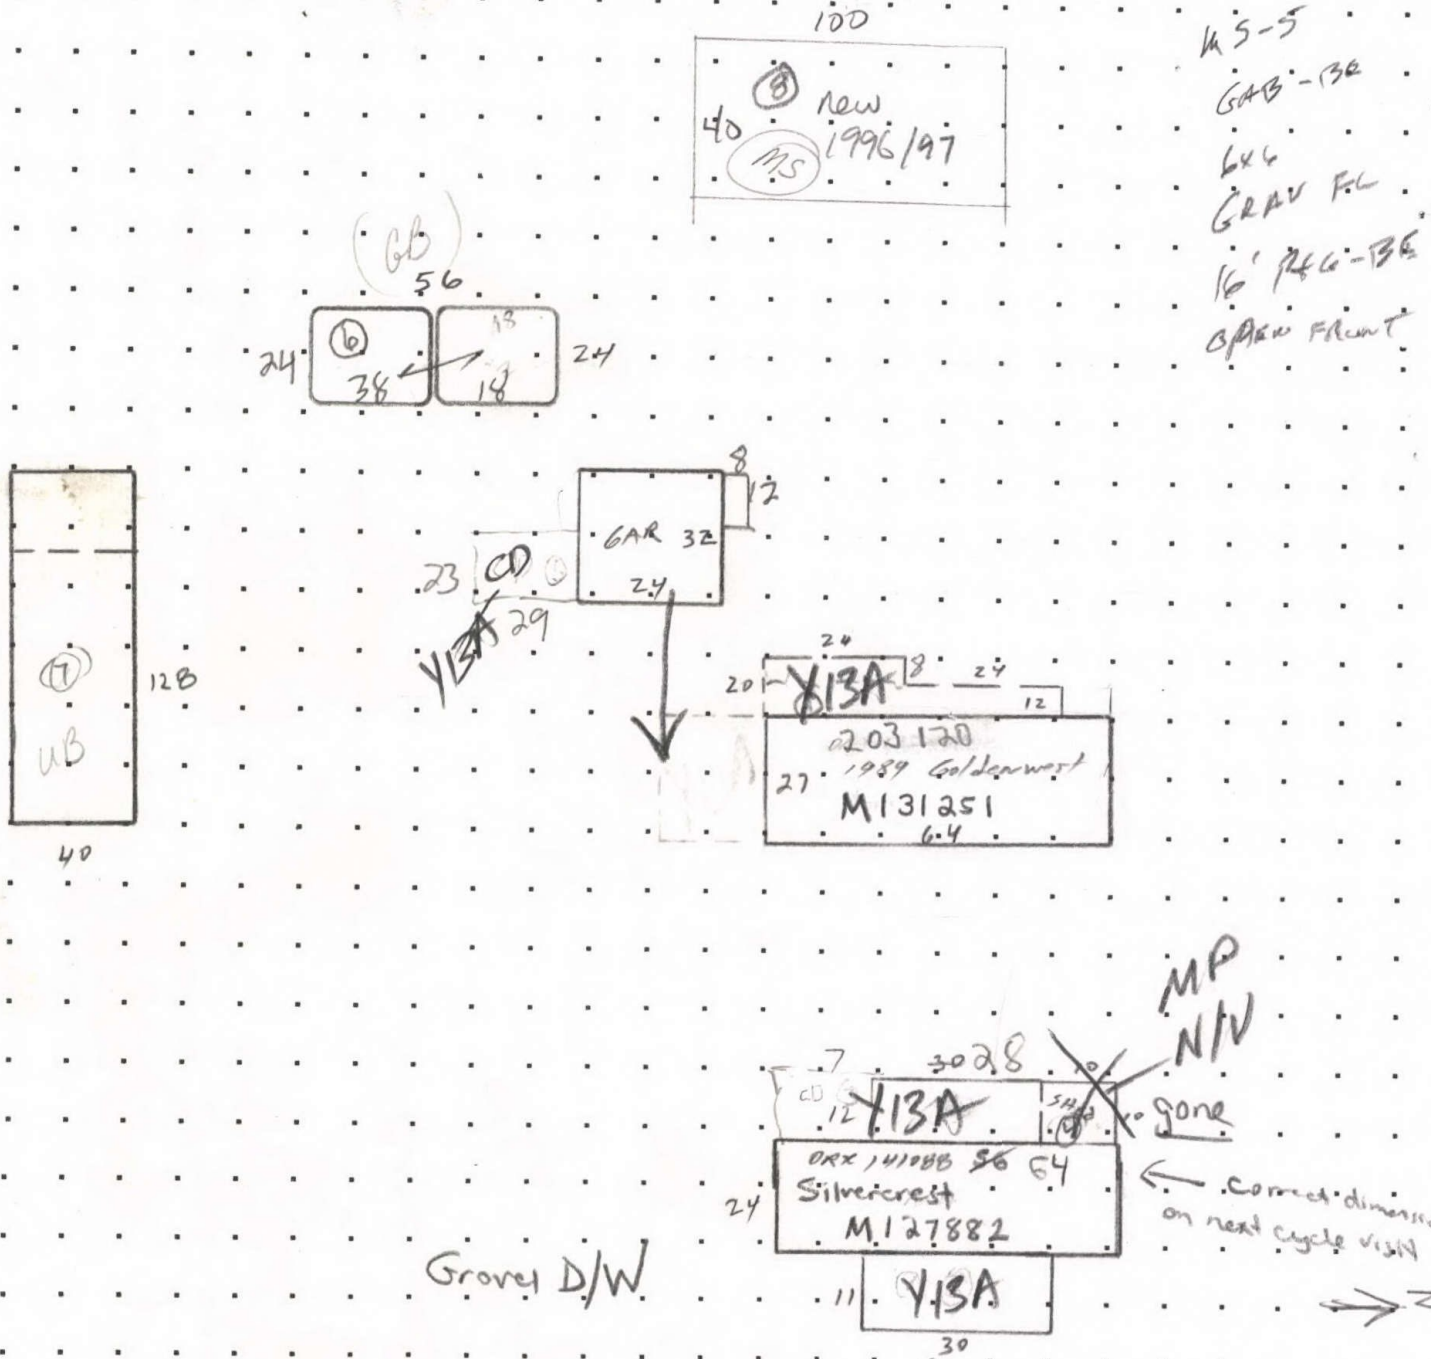 100
8 new
40 1996/97
MS
M5-5
GAB-BE
6x6
GRAV FL
OPEN FRONT
(GB)
56
24 6 24
38 18
8
12
GAR 32
24
23 CD
29
Y13A
7
128
UB
40
24
20 Y13A 8 24
12
203120
1989 Goldenwest
27 M131251
64
MP
N/V
7 30 28 10
CD 12 Y13A SH 10 gone
ORX 141088 56 64
Silvercrest
24 M127882
← correct dimensi
on next cycle visit
Gravel D/W
11 Y13A
30